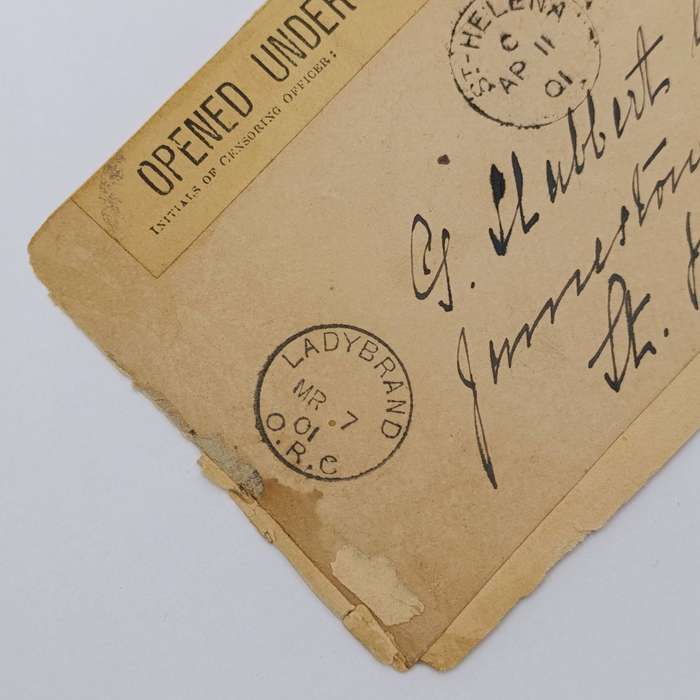 OPENED UNDER
INITIALS OF CENSORING OFFICER:
ST. HELENA
C
AP 11
01
G.
Jamestown
St.
LADYBRAND
MR 7
01
O.R.C